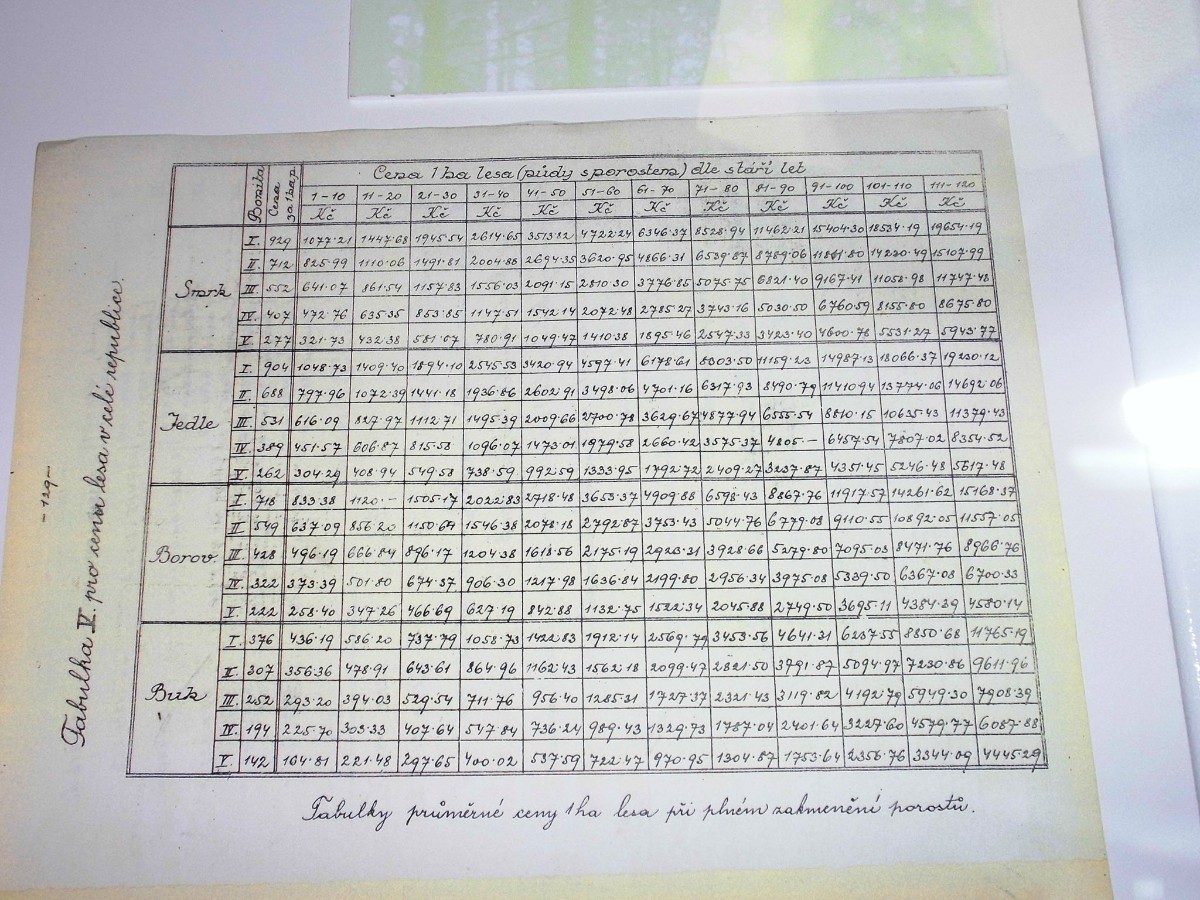 Cena 1 ha lesa (půdy s porostem) dle stáří let
Bonita Cena za 1 ha p. 1-10 11-20 21-30 31-40 41-50 51-60 61-70 71-80 81-90 91-100 101-110 111-120
Kč Kč Kč Kč Kč Kč Kč Kč Kč Kč Kč Kč
Smrk I. 929 1077·21 1447·68 1945·54 2614·65 3513·82 4722·24 6346·37 8528·94 11462·21 15404·30 18534·19 19654·19
II. 712 825·99 1110·06 1491·81 2004·88 2694·35 3620·95 4866·31 6539·87 8789·06 11811·80 14230·49 15107·99
III. 552 641·07 861·54 1157·83 1556·03 2091·15 2810·30 3776·85 5075·75 6821·40 9167·41 11058·98 11747·48
IV. 407 472·76 635·35 853·85 1147·51 1542·14 2072·48 2785·27 3743·16 5030·50 6760·59 8155·80 8675·80
V. 277 321·73 432·38 581·07 780·91 1049·47 1410·38 1895·46 2547·33 3423·40 4600·78 5531·27 5943·77
Jedle I. 904 1048·73 1409·40 1894·10 2545·53 3420·94 4597·41 6178·61 8303·50 11159·23 14987·13 18066·37 19230·12
II. 688 797·96 1072·39 1441·18 1936·86 2602·91 3498·06 4701·16 6317·93 8490·79 11410·94 13774·06 14692·06
III. 531 616·09 827·97 1112·71 1495·39 2009·66 2700·78 3629·67 4877·94 6555·54 8810·15 10635·43 11379·43
IV. 389 451·57 606·87 815·58 1096·07 1473·01 1979·58 2660·42 3575·37 4805·— 6457·54 7807·02 8354·52
V. 262 304·29 408·94 549·58 738·59 992·59 1333·95 1792·72 2409·27 3237·87 4351·45 5246·48 5617·48
Borov. I. 718 833·38 1120·— 1505·17 2022·83 2718·48 3653·37 4909·88 6598·43 8867·76 11917·57 14261·62 15168·37
II. 549 637·09 856·20 1150·67 1546·38 2078·18 2792·87 3753·43 5044·76 6779·08 9110·55 10892·05 11557·05
III. 428 496·19 666·84 896·17 1204·38 1618·56 2175·19 2923·31 3928·66 5279·80 7095·03 8471·76 8966·76
IV. 322 373·39 501·80 674·37 906·30 1217·98 1636·84 2199·80 2956·34 3975·08 5339·50 6367·08 6700·33
V. 222 258·40 347·26 466·69 627·19 842·88 1132·75 1522·34 2045·88 2749·50 3695·11 4384·39 4580·14
Buk I. 376 436·19 586·20 737·79 1058·73 1422·83 1912·14 2569·79 3453·56 4641·31 6237·55 8850·68 11765·19
II. 307 356·36 478·91 643·61 864·96 1162·43 1562·18 2099·47 2821·50 3791·87 5094·97 7230·86 9611·96
III. 252 293·20 394·03 529·54 711·76 956·40 1285·31 1727·37 2321·43 3119·82 4192·79 5949·30 7908·39
IV. 194 225·70 303·33 407·64 547·84 736·24 989·43 1329·73 1787·04 2401·64 3227·60 4579·77 6087·88
V. 142 164·81 221·48 297·65 400·02 537·59 722·47 970·95 1304·87 1753·64 2356·76 3344·09 4445·29
Tabulky průměrné ceny 1 ha lesa při plném zakmenění porostů.
Tabulka V. pro cenu lesa v celé republice.
-129-